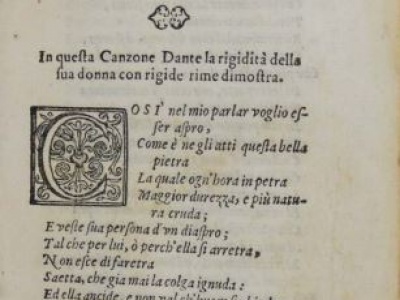 In questa Canzone Dante la rigidità della
sua donna con rigide rime dimostra.
COSI' nel mio parlar voglio es-
ser aspro,
Come è ne gli atti questa bella
pietra
La quale ogn'hora in petra
Maggior durezza, e più natu-
ra cruda;
E veste sua persona d'vn diaspro;
Tal che per lui, ò perch'ella si arretra,
Non esce di faretra
Saetta, che gia mai la colga ignuda:
Ed ella ancide, e non val ch'huom